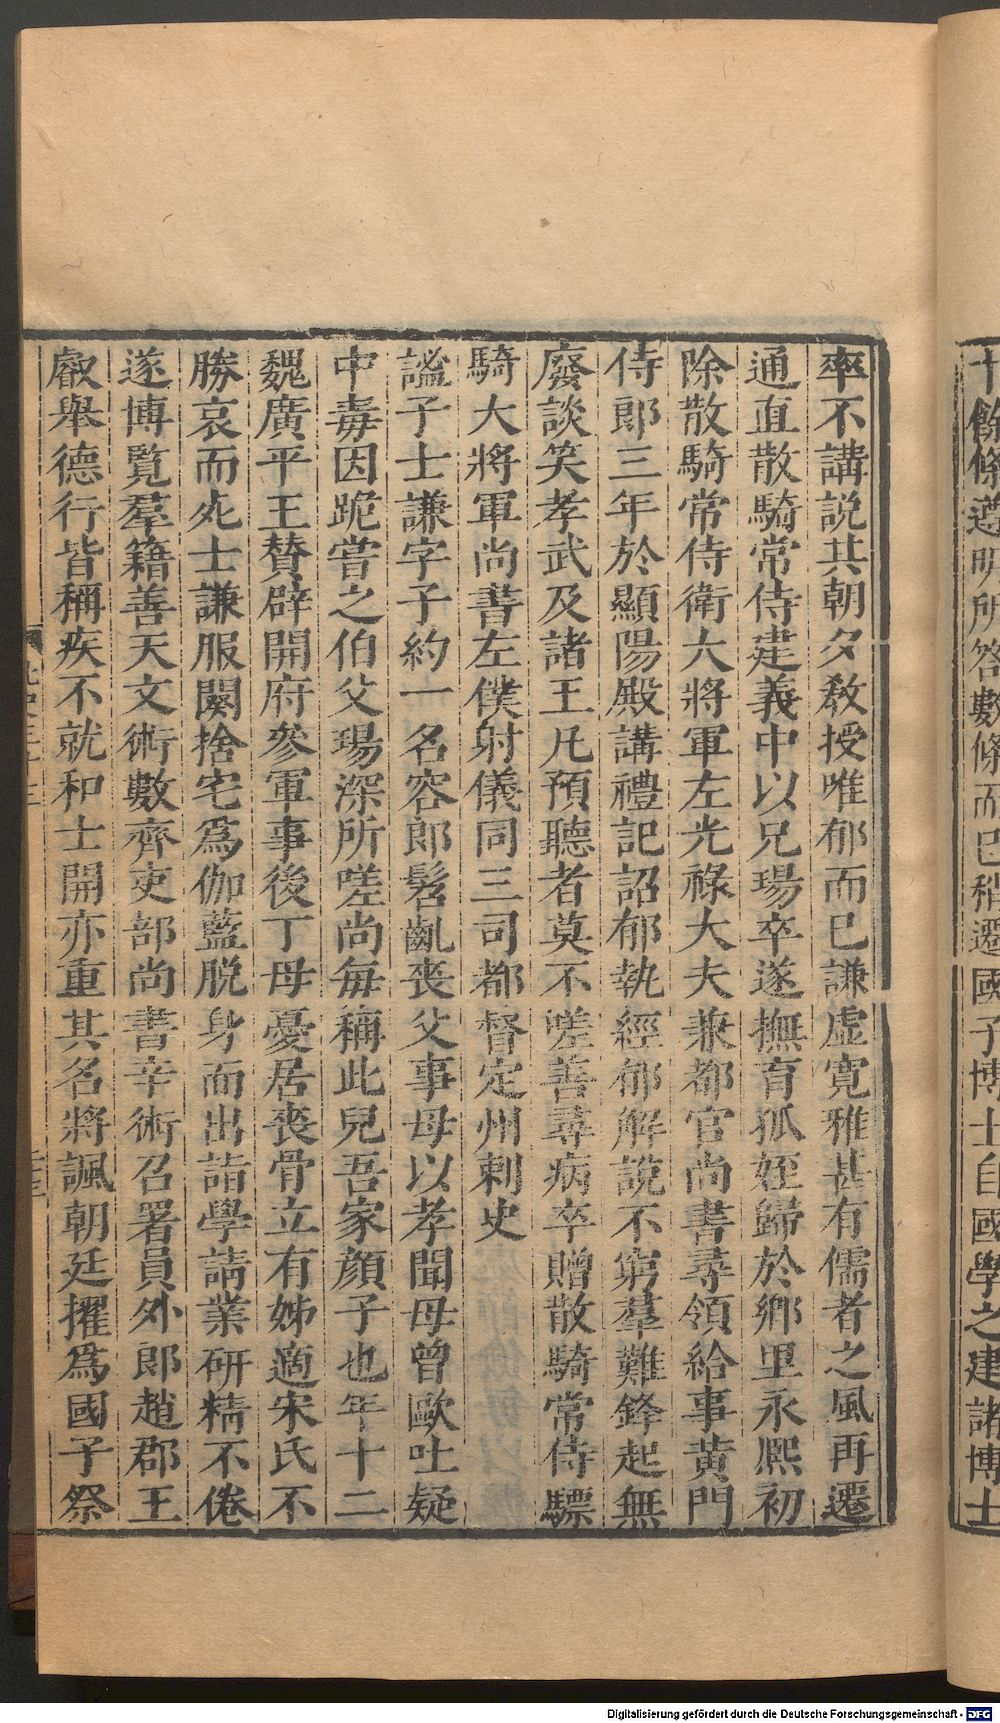 十餘條遵明所答數條而已稍遷國子博士自國學之建諸博士
率不講說其朝夕敎授唯郁而已謙虛寬雅甚有儒者之風再遷
通直散騎常侍建義中以兄瑒卒遂撫育孤姪歸於鄉里永熙初
除散騎常侍衛大將軍左光祿大夫兼都官尚書尋領給事黃門
侍郎三年於顯陽殿講禮記詔郁執經郁解說不窮羣難鋒起無
廢談笑孝武及諸王凡預聽者莫不嗟善尋病卒贈散騎常侍驃
騎大將軍尚書左僕射儀同三司都督定州刺史
謐子士謙字子約一名容郎髫齓喪父事母以孝聞母曾歐吐疑
中毒因跪嘗之伯父瑒深所嗟尚每稱此兒吾家顏子也年十二
魏廣平王贊辟開府參軍事後丁母憂居喪骨立有姊適宋氏不
勝哀而死士謙服闋捨宅爲伽藍脫身而出詣學請業研精不倦
遂博覽羣籍善天文術數齊吏部尚書辛術召署員外郎趙郡王
叡舉德行皆稱疾不就和士開亦重其名將諷朝廷擢爲國子祭
Digitalisierung gefördert durch die Deutsche Forschungsgemeinschaft - DFG